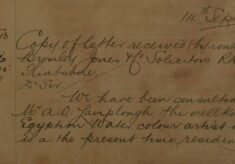 14th Sep
Copy of letter received from
Bromley Jones & Co Solicitors
Dr Sir
We have been consulted
Mr A.O. Lamplough the well k
Egyptian Water colour artist
is a the present time residin